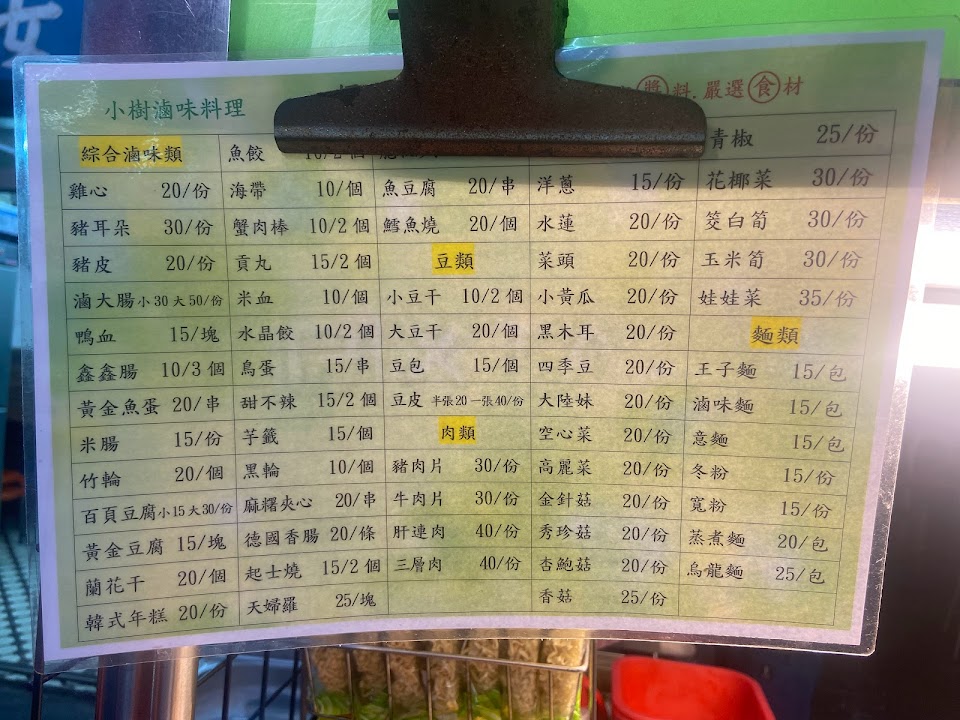 女
小樹滷味料理
醬料.嚴選食材
綜合滷味類
雞心 20/份
豬耳朵 30/份
豬皮 20/份
滷大腸 小30大50/份
鴨血 15/塊
鑫鑫腸 10/3個
黃金魚蛋 20/串
米腸 15/份
竹輪 20/個
百頁豆腐 小15大30/份
黃金豆腐 15/塊
蘭花干 20/個
韓式年糕 20/份
魚餃
海帶 10/個
蟹肉棒 10/2個
貢丸 15/2個
米血 10/個
水晶餃 10/2個
鳥蛋 15/串
甜不辣 15/2個
芋籤 15/個
黑輪 10/個
麻糬夾心 20/串
德國香腸 20/條
起士燒 15/2個
天婦羅 25/塊
魚豆腐 20/串
鱈魚燒 20/個
豆類
小豆干 10/2個
大豆干 20/個
豆包 15/個
豆皮 半張20一張40/份
肉類
豬肉片 30/份
牛肉片 30/份
肝連肉 40/份
三層肉 40/份
洋蔥 15/份
水蓮 20/份
菜頭 20/份
小黃瓜 20/份
黑木耳 20/份
四季豆 20/份
大陸妹 20/份
空心菜 20/份
高麗菜 20/份
金針菇 20/份
秀珍菇 20/份
杏鮑菇 20/份
香菇 25/份
青椒 25/份
花椰菜 30/份
筊白筍 30/份
玉米筍 30/份
娃娃菜 35/份
麵類
王子麵 15/包
滷味麵 15/包
意麵 15/包
冬粉 15/份
寬粉 15/份
蒸煮麵 20/包
烏龍麵 25/包